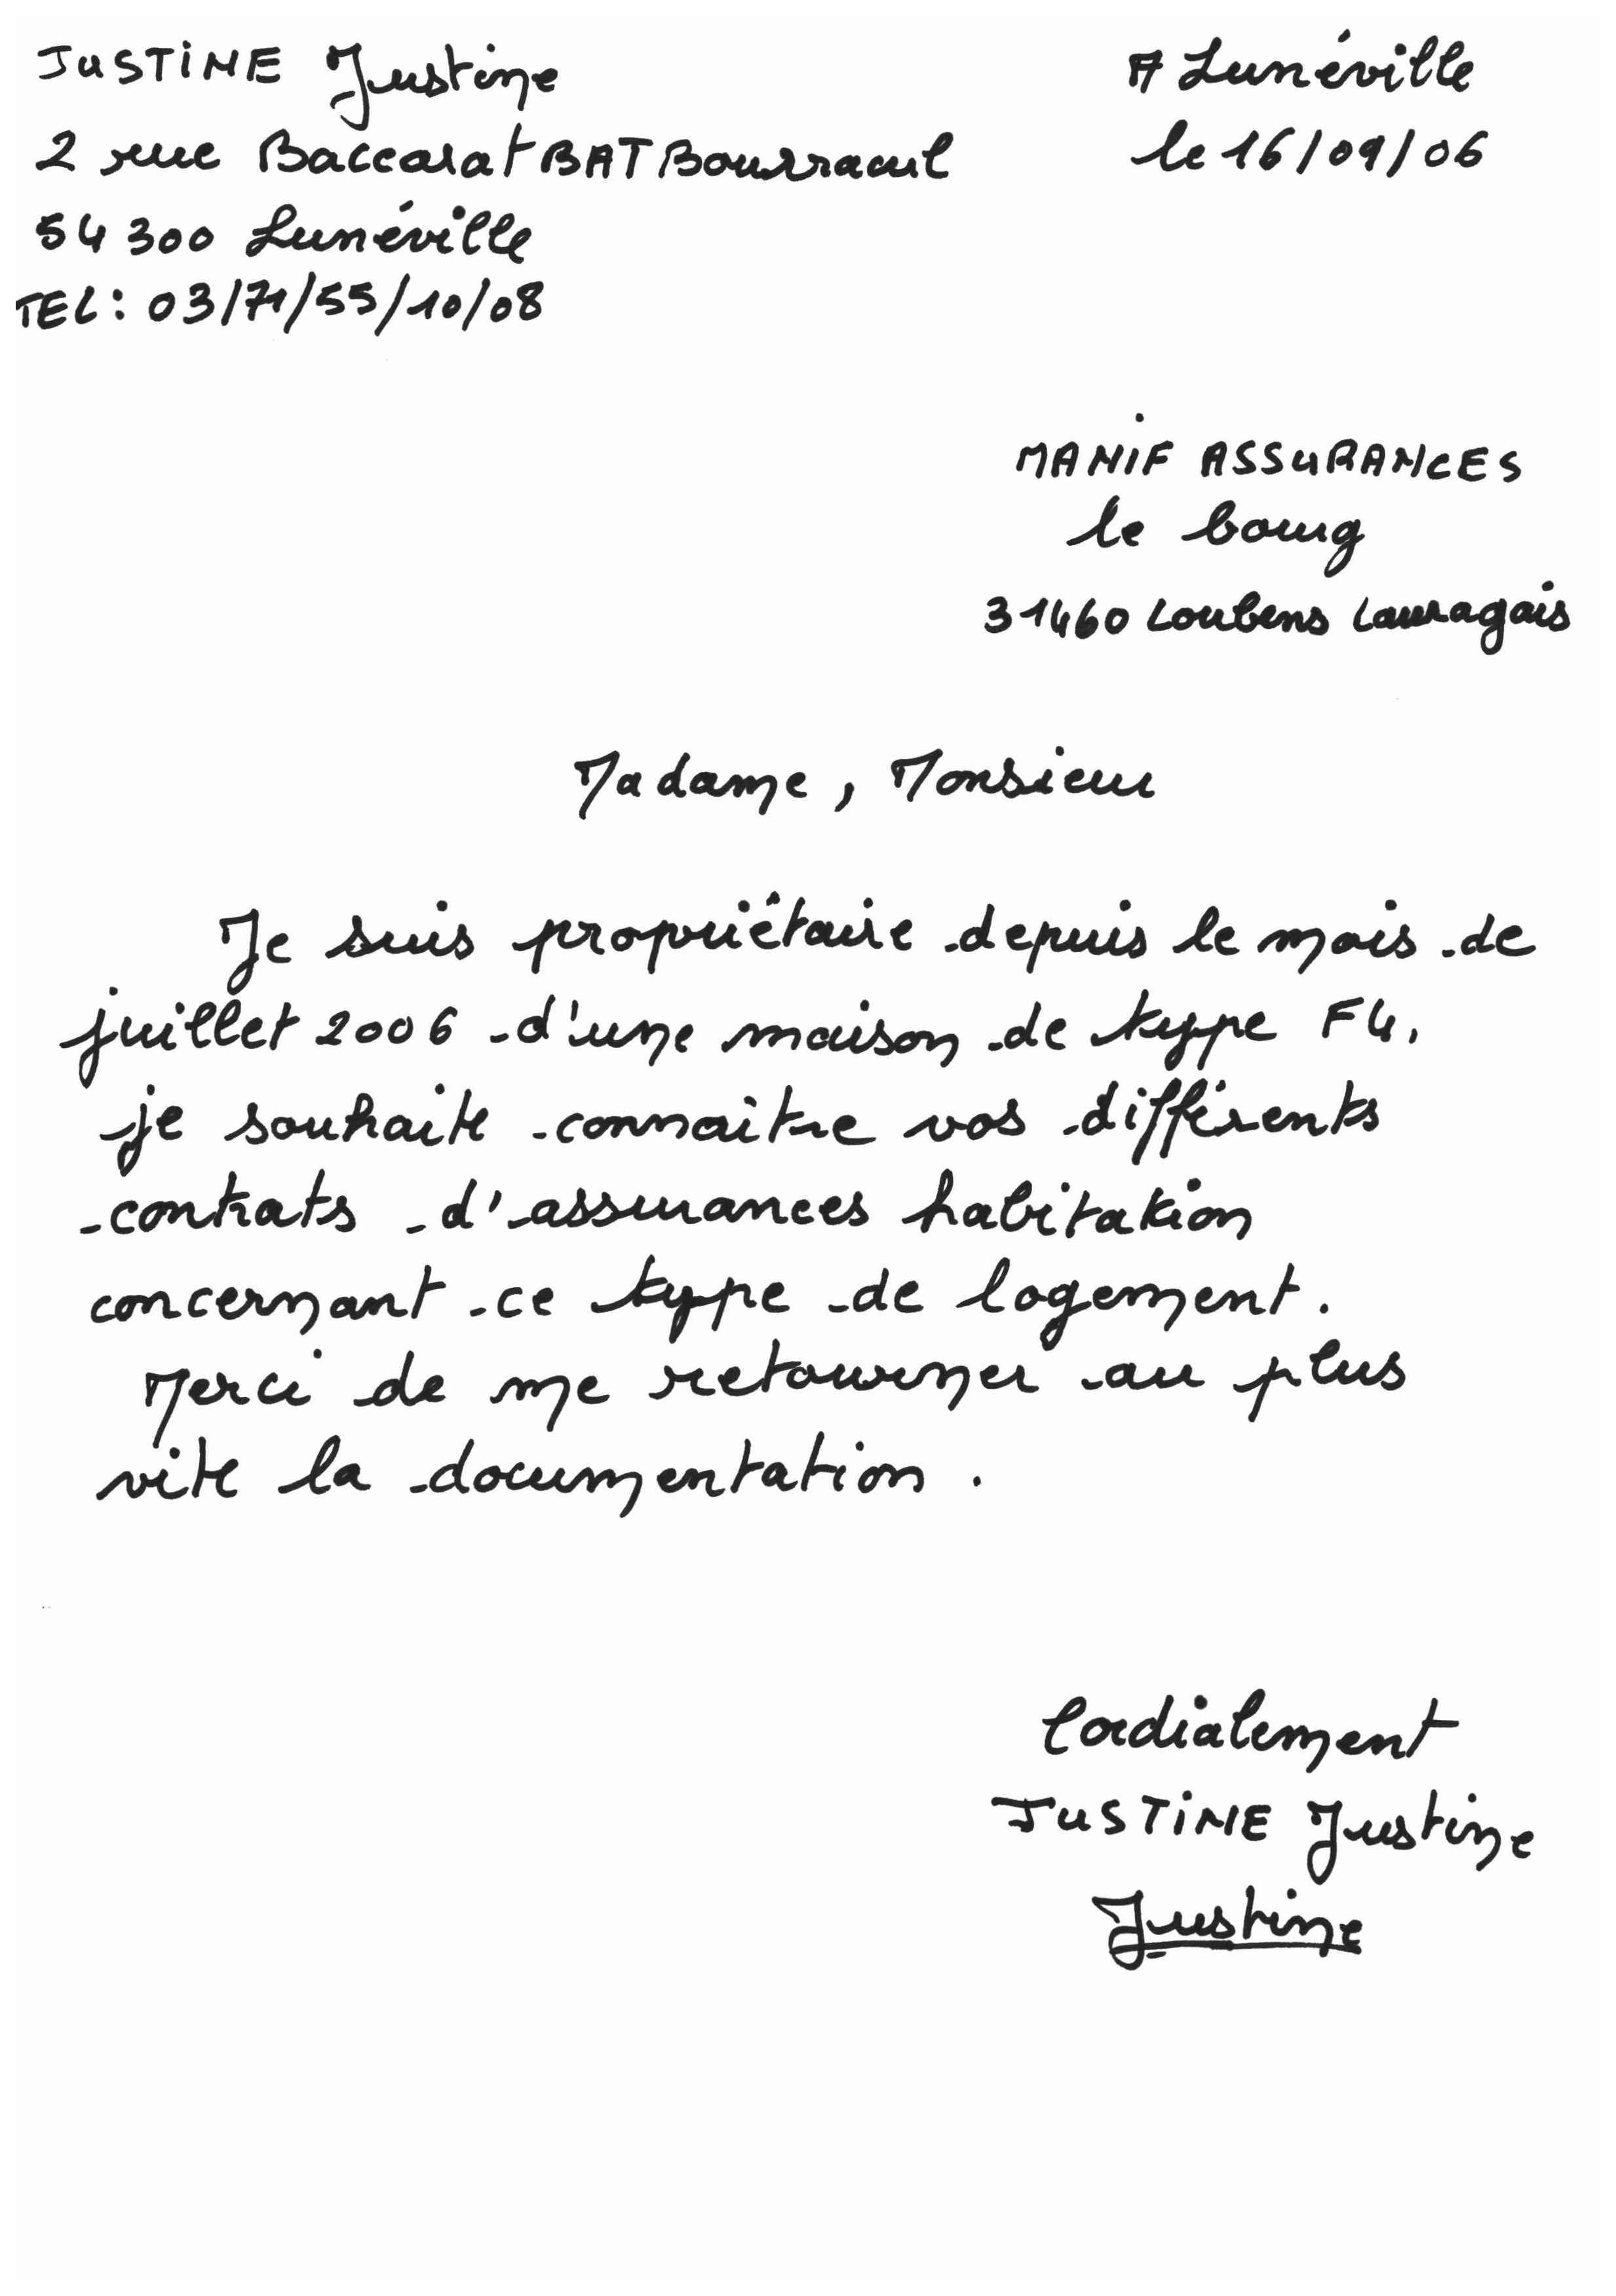 JUSTINE Justine
A Lunéville
2 rue Baccarat BAT Boursraul
le 16/09/06
54 300 Lunéville
TEL : 03/71/55/10/08
MANIF ASSURANCES
le bourg
31460 Loubens Lauragais
Madame, Monsieur
Je suis propriétaire depuis le mois de
juillet 2006 d'une maison de type F4.
je souhaite connaitre vos différents
contrats d'assurances habitation
concernant ce type de logement.
Merci de me retourner au plus
vite la documentation.
Cordialement
JUSTINE Justine
Justine